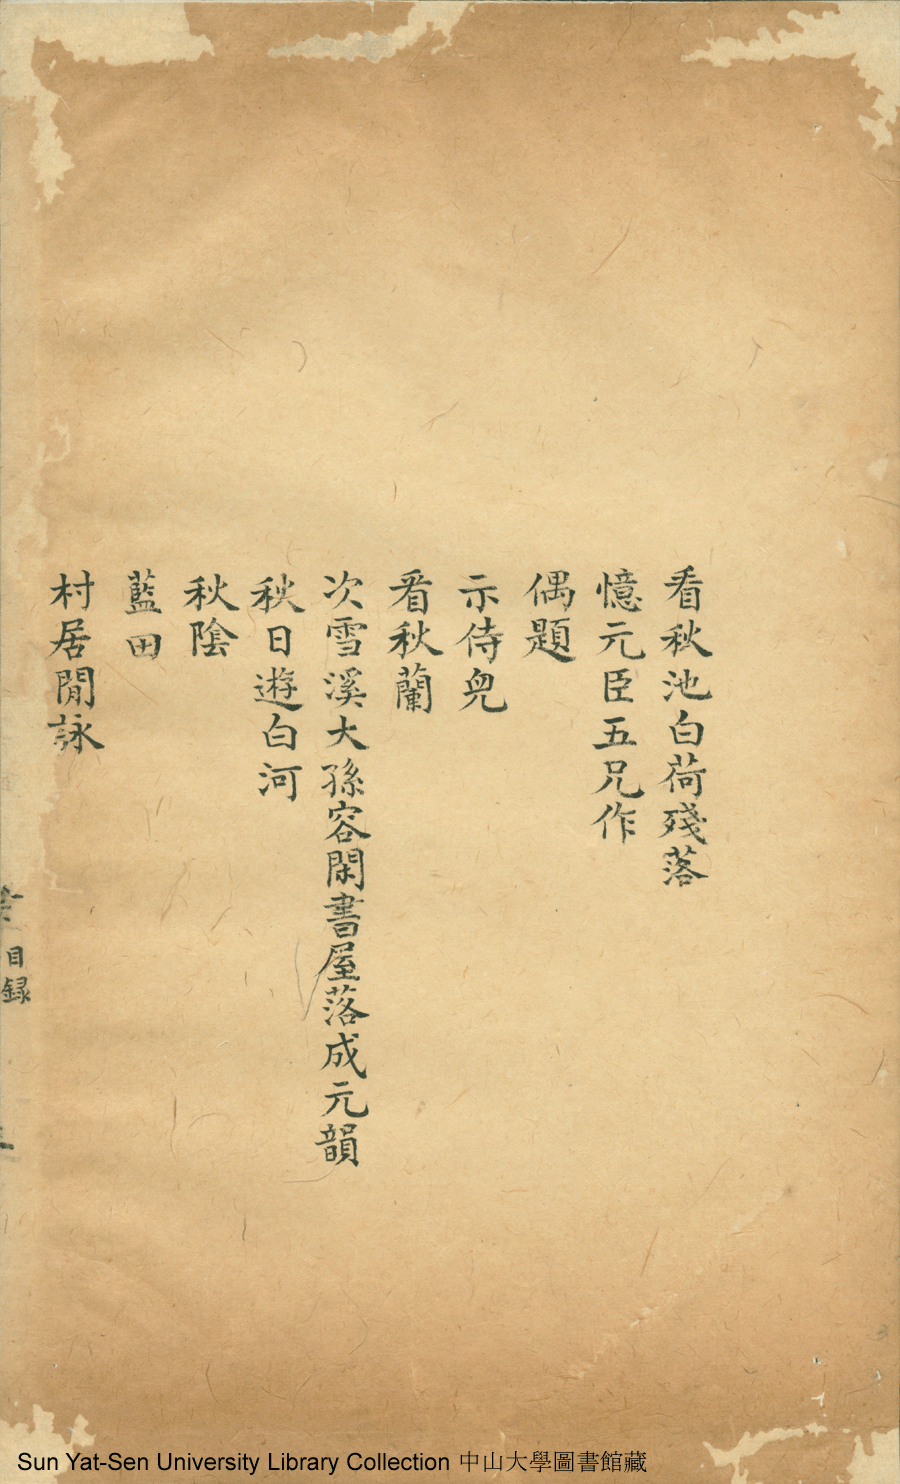 看秋池白荷殘落
憶元臣五兄作
偶題
示侍兒
看秋蘭
次雪溪大孫容閑書屋落成元韻
秋日遊白河
秋陰
藍田
村居閒詠
目録
Sun Yat-Sen University Library Collection 中山大學圖書館藏